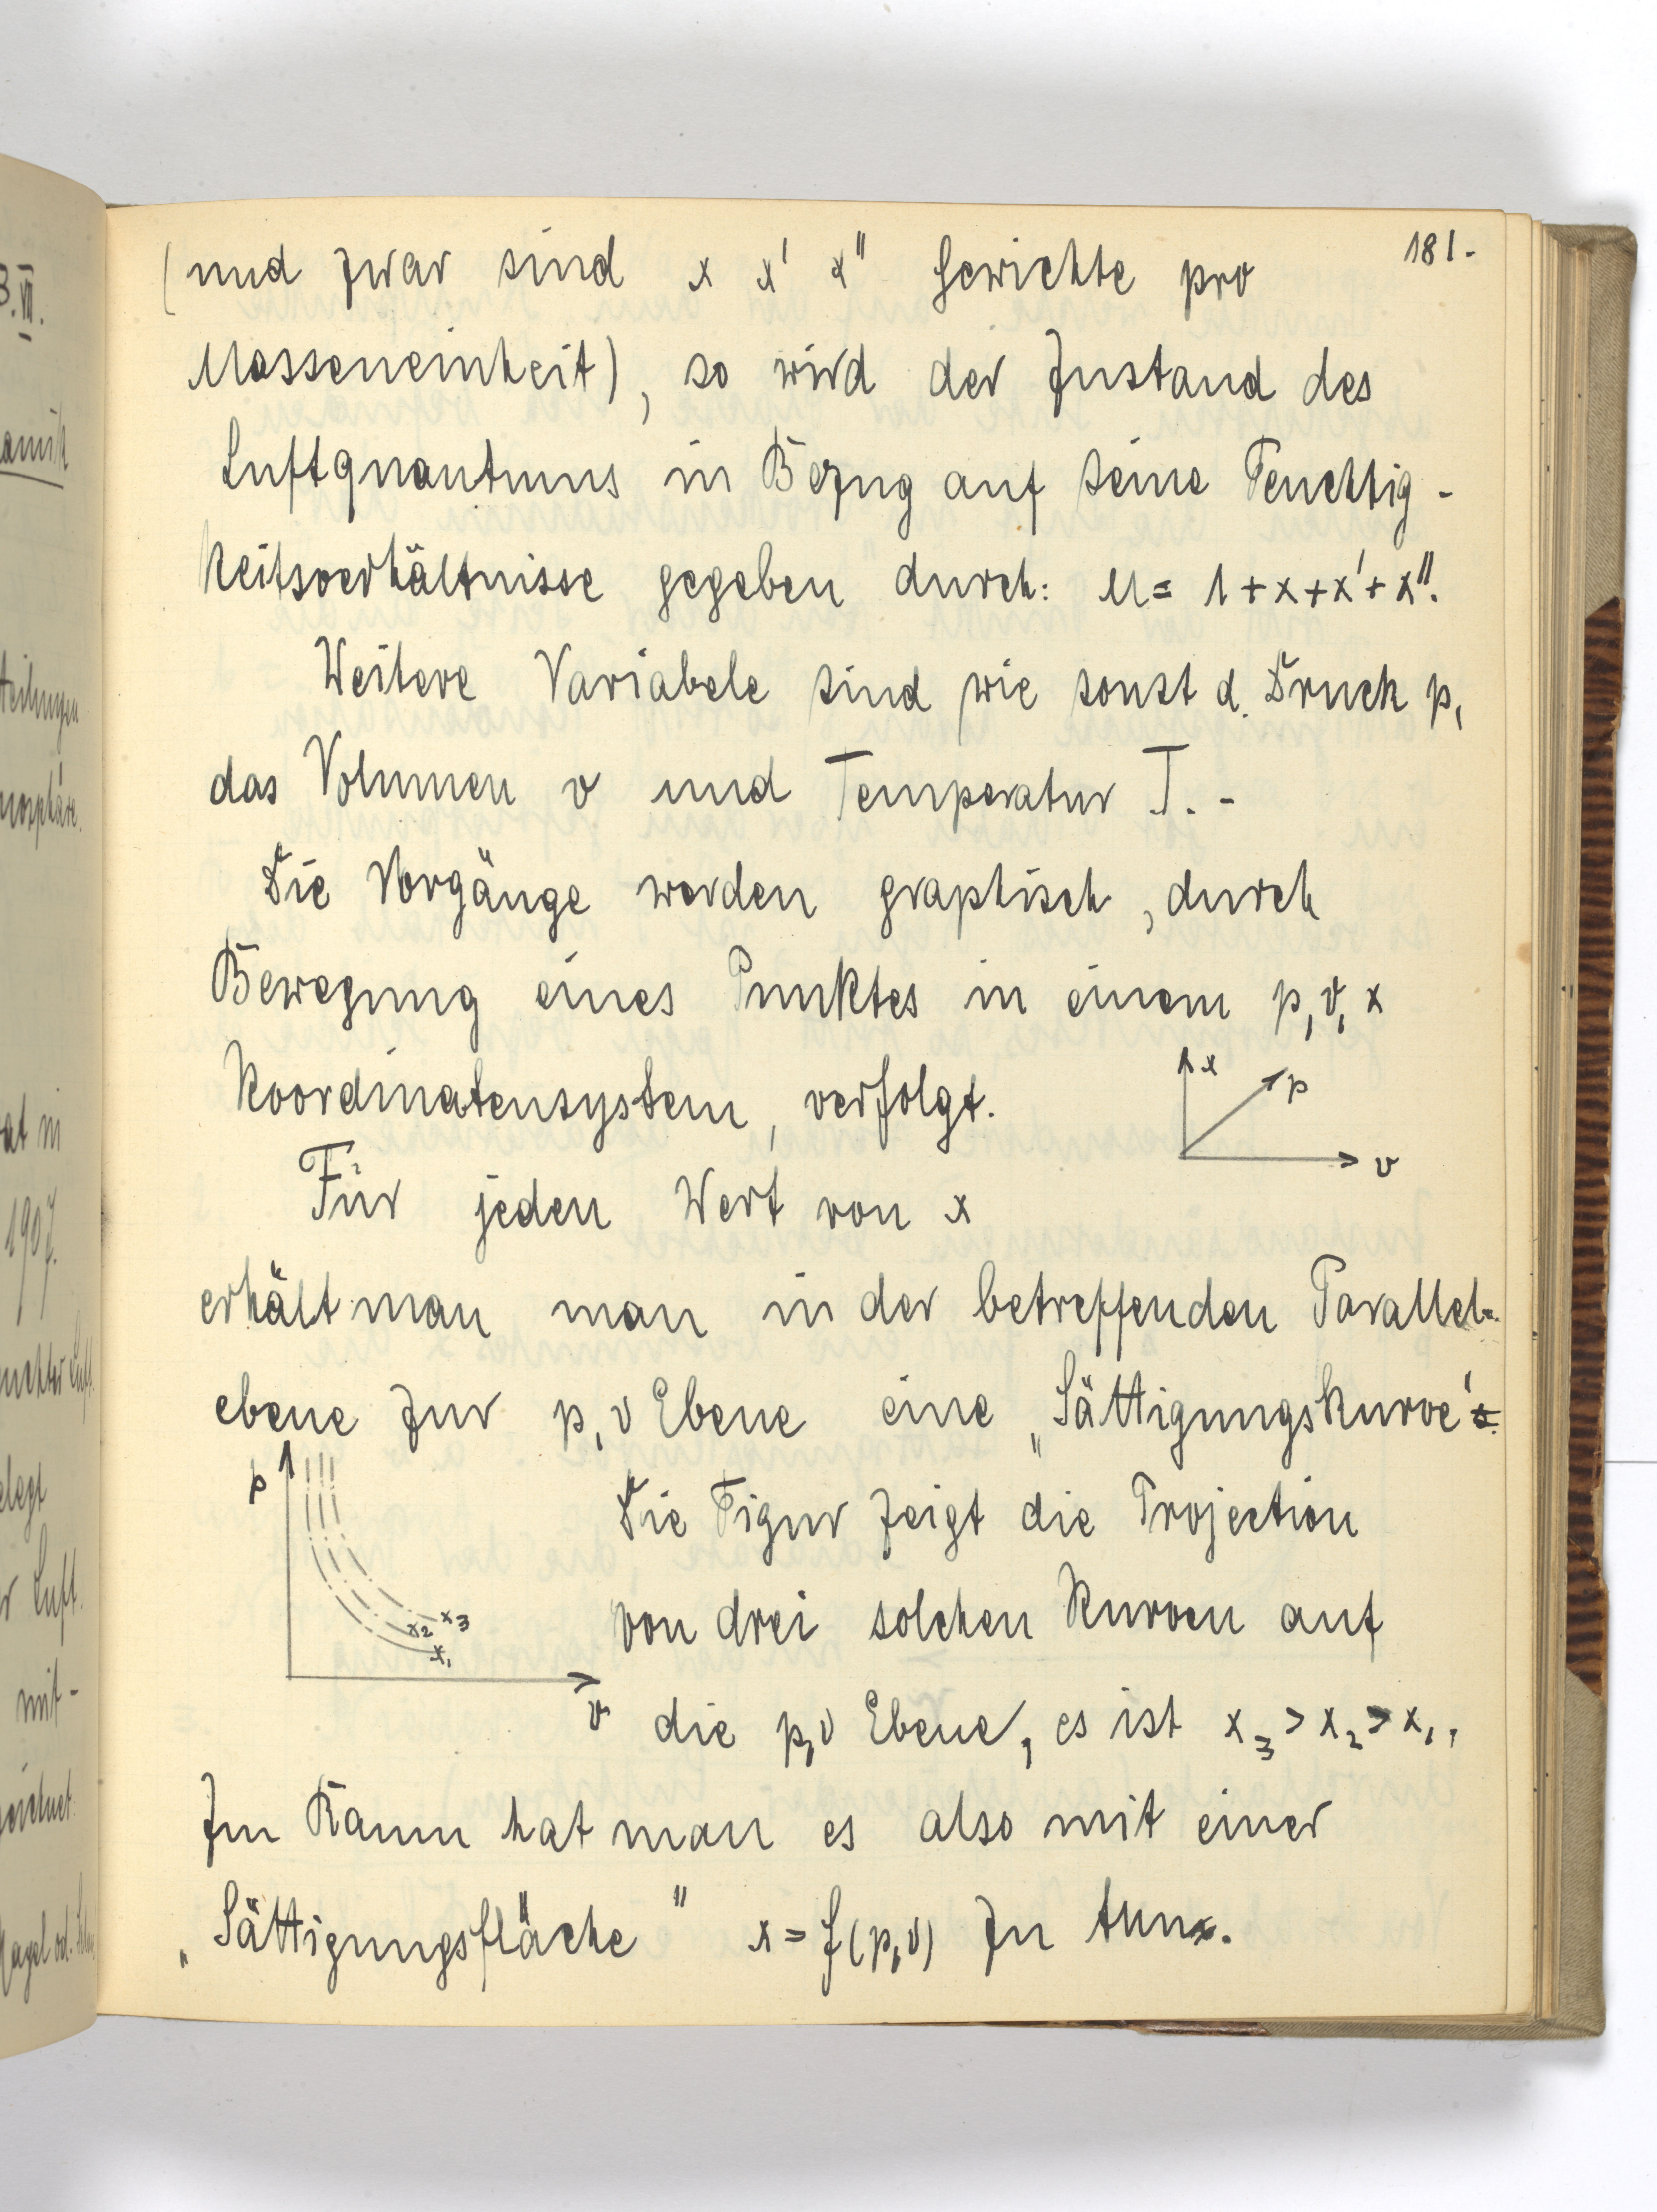 181.
(und zwar sind x x' x'' Gewichte pro
Masseneinheit), so wird der Zustand des
Luftquantums in Bezug auf seine Feuchtig-
keitsverhältnisse gegeben durch: M = 1 + x + x' + x''.
Weitere Variabele sind wie sonst d. Druck p,
das Volumen v und Temperatur T. -
Die Vorgänge werden graphisch, durch
Bewegung eines Punktes in einem p, v, x
Koordinatensystem, verfolgt.
x
p
v
Für jeden Wert von x
erhält man man in der betreffenden Parallel-
ebene zur p, v Ebene eine „Sättigungskurve".
p
Die Figur zeigt die Projection
von drei solchen Kurven auf
x₂ x₃
x₁
v
die p, v Ebene, es ist x₃ > x₂ > x₁,
Im Raum hat man es also mit einer
„Sättigungsfläche" x = f(p, v) zu tun.
3.VII.
1907.
mit-